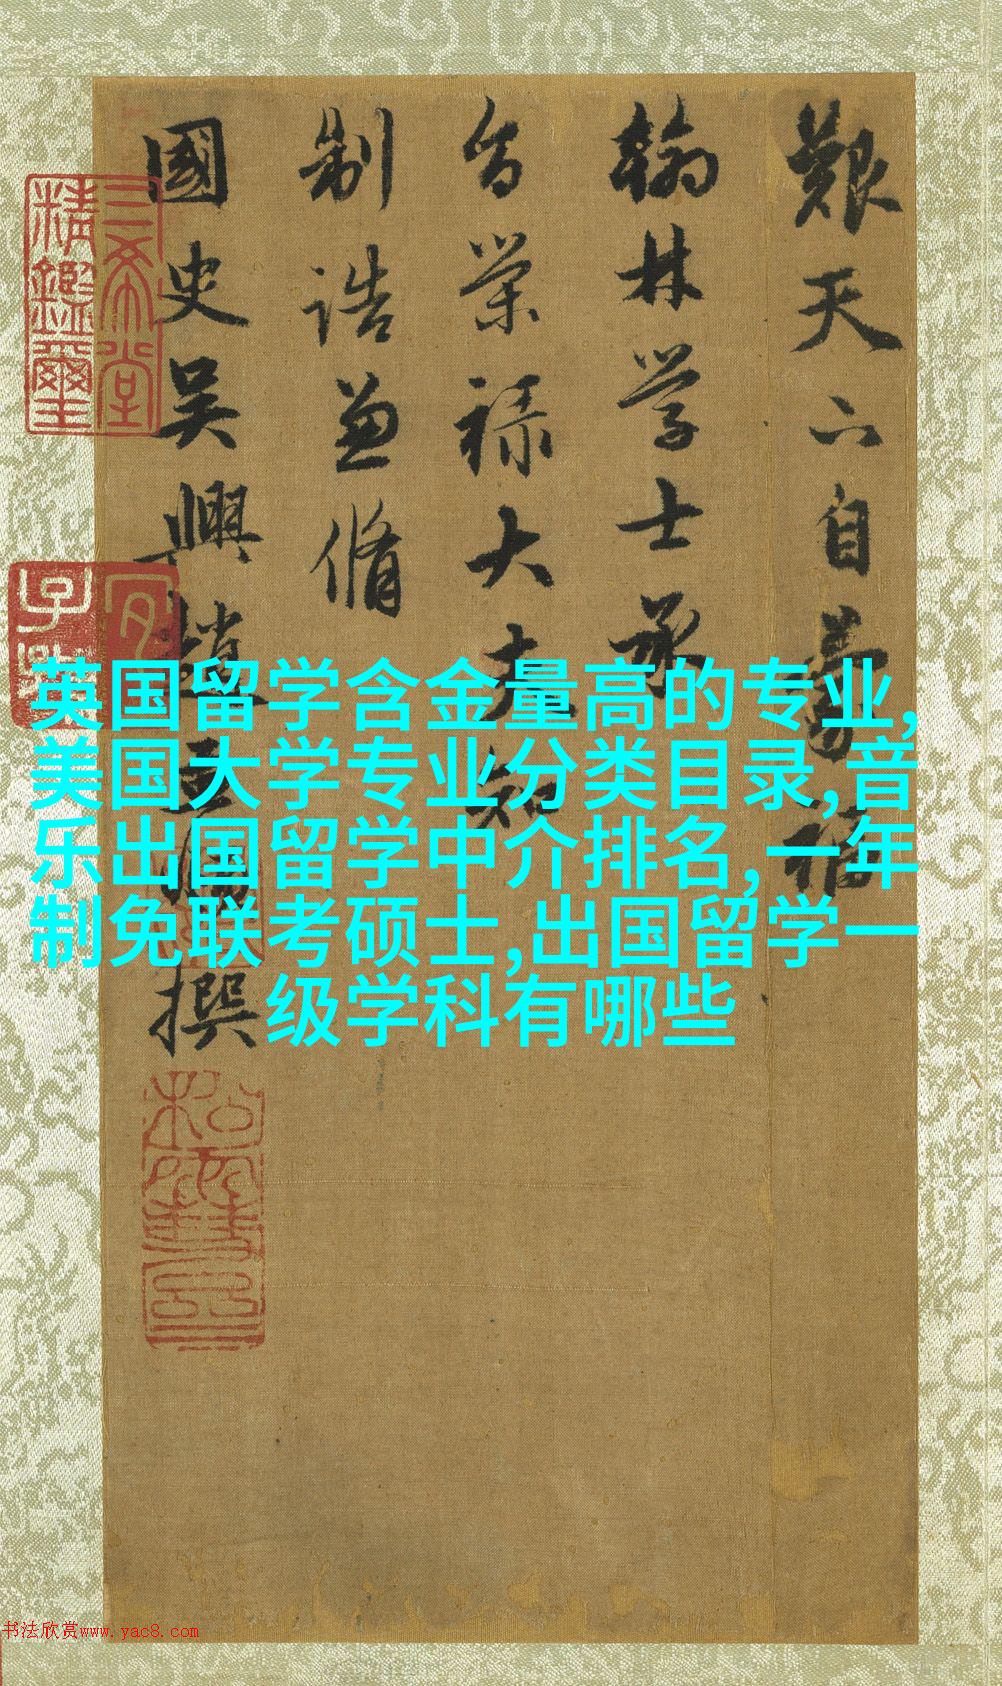 天
自
福
翰林学士承
旨荣禄大夫知
制誥兼脩
國史吴興趙孟頫撰
三希堂
精鑑璽
宜
子孫
英国留学含金量高的专业,
美国大学专业分类目录,音
乐出国留学中介排名,一年
制免联考硕士,出国留学一
级学科有哪些
书法欣赏www.yac8.com